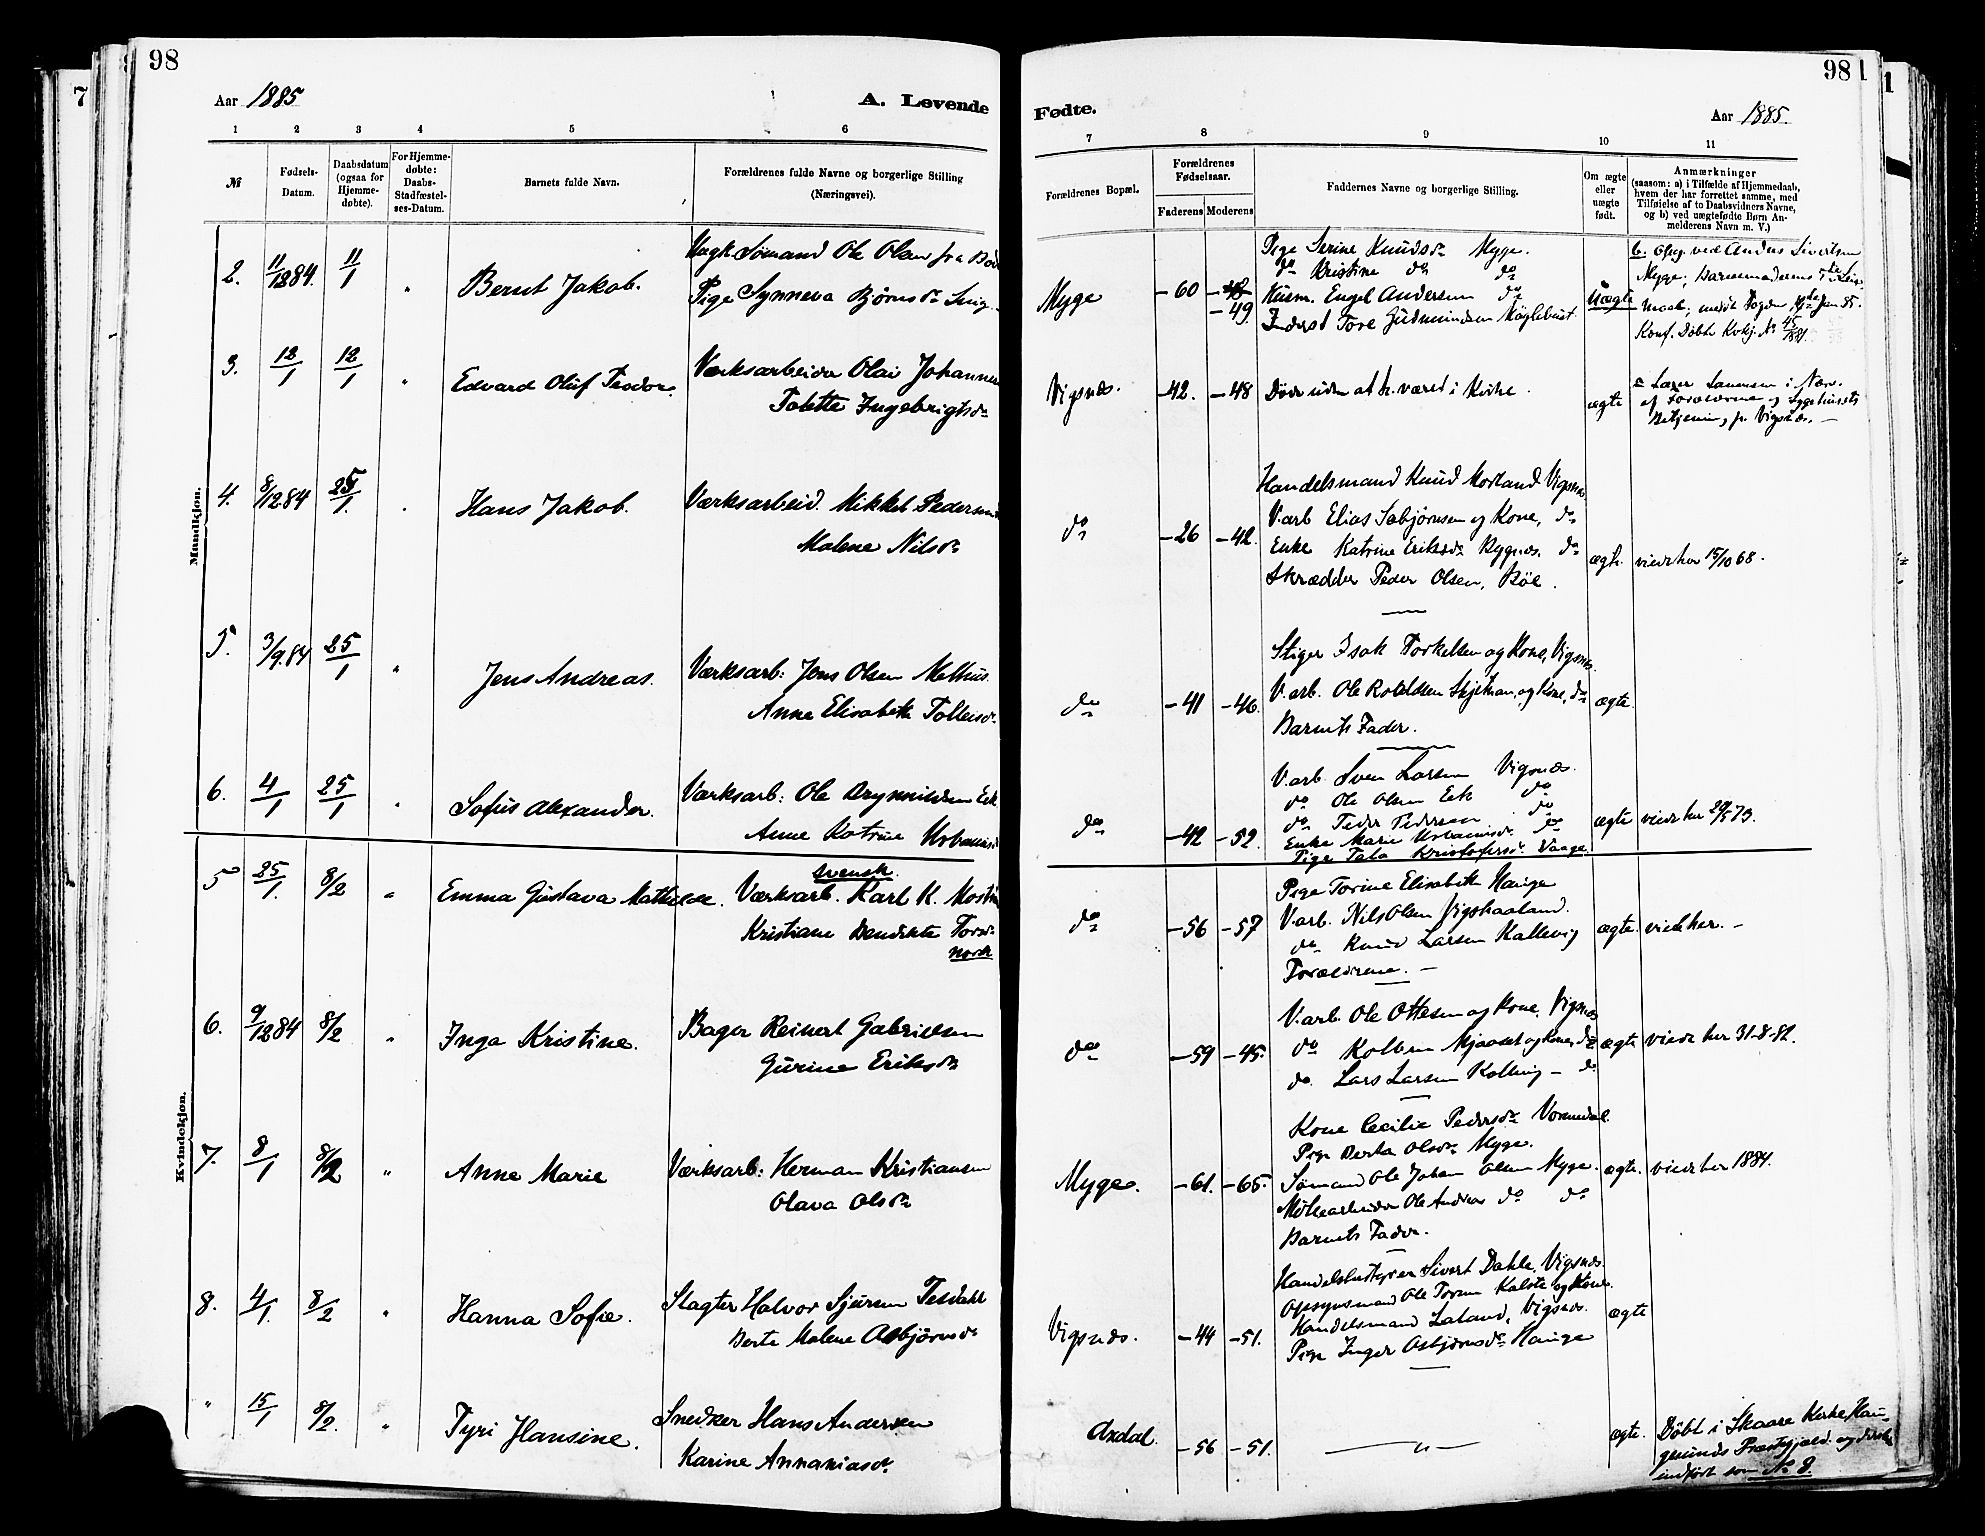 98
98
Aar 1885
A. Levende
Fødte.
Aar 1885.
1 2 3 4 5 6
7 8 9 10 11
№
Fødsels-
Datum.
Daabsdatum
(ogsaa for
Hjemme-
døbte).
For Hjemme-
døbte:
Daabs-
Stadfæstel-
ses-Datum.
Barnets fulde Navn.
Forældrenes fulde Navne og borgerlige Stilling
(Næringsvei).
Forældrenes Bopæl.
Forældrenes
Fødselsaar.
Faderens Moderens
Faddernes Navne og borgerlige Stilling.
Om ægte
eller
uægte
født.
Anmærkninger
(saasom: a) i Tilfælde af Hjemmedaab,
hvem der har forrettet samme, med
Tilføielse af to Daabsvidners Navne,
og b) ved uægtefødte Børn An-
melderens Navn m. V.)
Mandkjøn.
2. 11/12 84. 11/1 " Bernt Jakob.
Ungk. Sømand Ole Olsen fra
Pige Synneva Bjørnsdr
Myge -60 -48 -49.
Pige Serine Knudsdr Myge.
do Kristine do do
Husm. Engel Andersen do
Inderst Tore Gudmundsen
Uægte
b. Opg. ved Andus Sivertsen
Myge; Barnemoderens
3. 12/1 12/1 " Edvard Oluf Teodor.
Værksarbeider Olai Johannes
Tolette Ingebrigtsdr
Vigsnæs. -42. -48
Døde uden at h. været i Kirke.
ægte
Betjening, p. Vigsnæs. —
4. 8/12 84 25/1. Hans Jakob.
Værksarbeid. Mikkel Pedersen
Malene Nilsdr
do -26 -42.
Handelsmand Knud Mostand Vigsnæs
V.arb Elias Sebjørnsen og Kone, do
Enke Katrine Eriksdr Rygnæs. do
Skrædder Peder Olsen, Bøe.
ægte. viede her 15/10 68.
5. 3/9.84 25/1 " Jens Andreas.
Værksarb: Jens Olsen Melhus.
Anne Elisabeth Tollevsdr
do -41 -46.
Stiger Isak Torkelsen og Kone, Vigsnæs.
V.arb. Ole Roaldsen og Kone, do
Barnets Fader.
ægte.
6. 4/1 25/1 " Sofus Alexander.
Værksarb: Ole Brynnildsen Eek
Anne Katrine Urbanisdr
do -42 -52.
V.arb. Sven Larsen Vigsnæs.
do Ole Olsen Eek do
do Peder Pedersen do
Enke Marie Urbanisdr do
Pige Tala Kristofersdr Vaage.
ægte viede her 73.
Kvindekjøn.
5 25/1. 8/2 " Emma Gustava Mathilde.
svensk.
Værksarb. Karl K. Mostrøm
Kristiane Bendikte Torsdr
norsk
do -56 -57
Pige Torine Elisabeth Hauge
V.arb. Nils Olsen Vigshaaland.
do Knud Larsen Kallevig
Forældrene. —
ægte. viede her. —
6. 9/12 84 8/2 " Inga Kristine.
Bager Reinert Gabrielsen
Gurine Eriksdr
do -59 -45.
V.arb. Ole Ottesen og Kone, Vigsnæs
do Kolben og Kone, do
do. Lars Larsen Kallevig — do
ægte viede her 31-8-82.
7. 8/1 8/2 " Anne Marie
Værksarb: Herman Kristiansen
Olava Olsdr
Myge. -61. -65.
Kone Cecilie Pedersdr Vormedal.
Pige Berta Olsdr Myge.
Sømand Ole Johan Olsen Myge.
Ole Andreas do do
Barnets Fader.
ægte. viede her 1884.
8. 4/1. 8/2 " Hanna Sofie.
Slagter Halvor Sjursen Tesdahl
Berte Malene Asbjørnsdr
Vigsnæs. -44 -51.
Handelsbestyrer Sivert Dahle, Vigsnæs.
Opsynsmand Ole Torsen Kalstø og Kone.
Handelsmand Laland, Vigsnæs.
Pige Inger Asbjørnsdr Hauge
ægte
" 15/1 8/2. " Tyri Hansine.
Snedker Hans Andersen
Karine Annaniasdr.
Axdal. -56 -51. — " —
ægte. Døbt i Skaare Kirke, Hau-
gesunds Præstegjæld. og
indført som No 8.